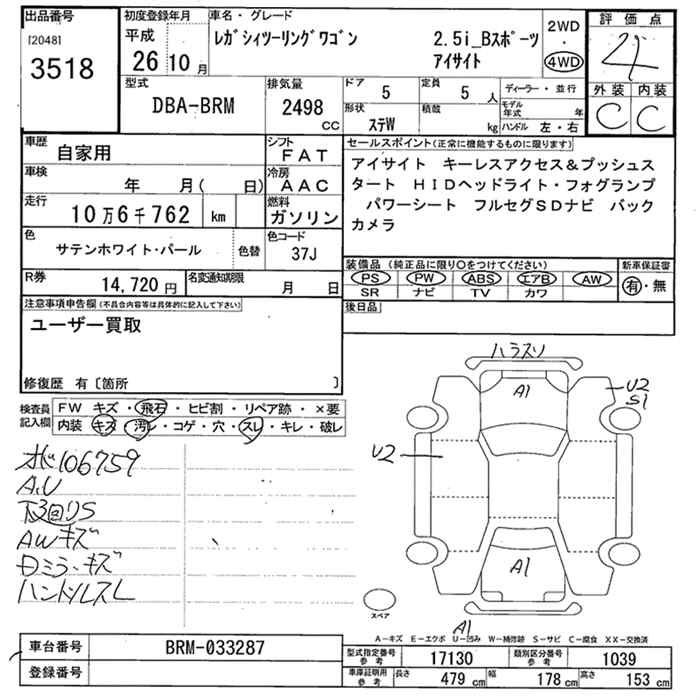 出品番号
[2048]
3518
初度登録年月
平成
26年10月
車名・グレード
レガシィツーリングワゴン 2.5i_Bスポーツ
アイサイト
2WD
・
4WD
評価点
4
外装 内装
C C
型式
DBA-BRM
排気量
2498
CC
ドア 5
定員 5 人
形状 ステW
積載 kg
ディーラー・並行
モデル年式 年
ハンドル 左・右
車歴
自家用
シフト
FAT
車検
年 月( 日)
冷房
AAC
走行
10万6千762 km
燃料
ガソリン
色
サテンホワイト・パール
色替
色コード
37J
R券 14,720円
名変通知期限 月 日
セールスポイント(正常に機能するものに限ります)
アイサイト キーレスアクセス&プッシュス
タート HIDヘッドライト・フォグランプ
パワーシート フルセグSDナビ バック
カメラ
装備品(純正品に限り○をつけてください)
PS PW ABS エアB AW
SR ナビ TV カワ
新車保証書
有・無
後日品
注意事項申告欄(不具合内容等は具体的に記入して下さい)
ユーザー買取
修復歴 有〔箇所 〕
検査員
記入欄
FW キズ・飛石・ヒビ割・リペア跡・×要
内装 キズ・汚レ・コゲ・穴・スレ・キレ・破レ
106759
A,U
下回りS
AWキズ
Dミラーキズ
ハンドルスレ
ハラスリ
A1
U2
S1
U2
A1
A1
スペア
A-キズ E-エクボ U-凹み W-補修跡 S-サビ C-腐食 XX-交換済
車台番号 BRM-033287
登録番号
型式指定番号
参考
17130
類別区分番号
参考
1039
車庫証明用
参考
長さ 479 cm
幅 178 cm
高さ 153 cm